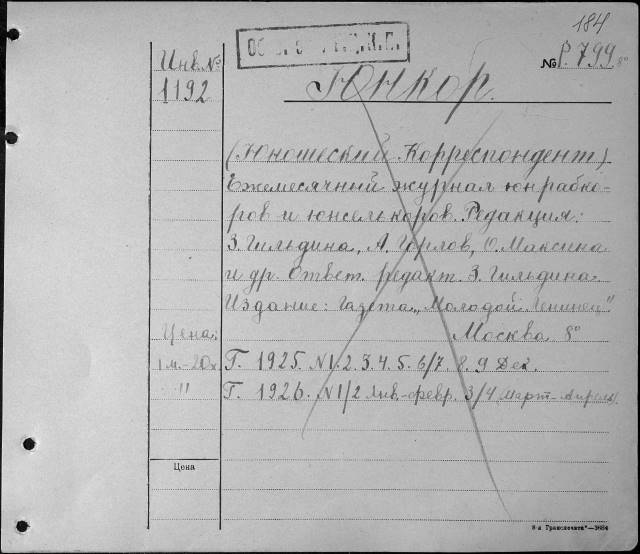 184
№ Р. 799 8°
Инв. №
1192
Юнкор.
(Юношеский Корреспондент)
Ежемесячный журнал юнрабко-
ров и юнселькоров. Редакция:
З. Гильдина, А. Горлов, О. Максина
и др. Ответ. редакт. З. Гильдина.
Издание: Газета „Молодой Ленинец"
Москва 8°
Цена:
1 м.-20к Г. 1925. N1. 2. 3. 4. 5. 6/7. 8. 9 Дек.
" Г. 1926. N1/2 Янв.-февр. 3/4 (Март-Апрель).
Цена
8-я Транспечати"—3684